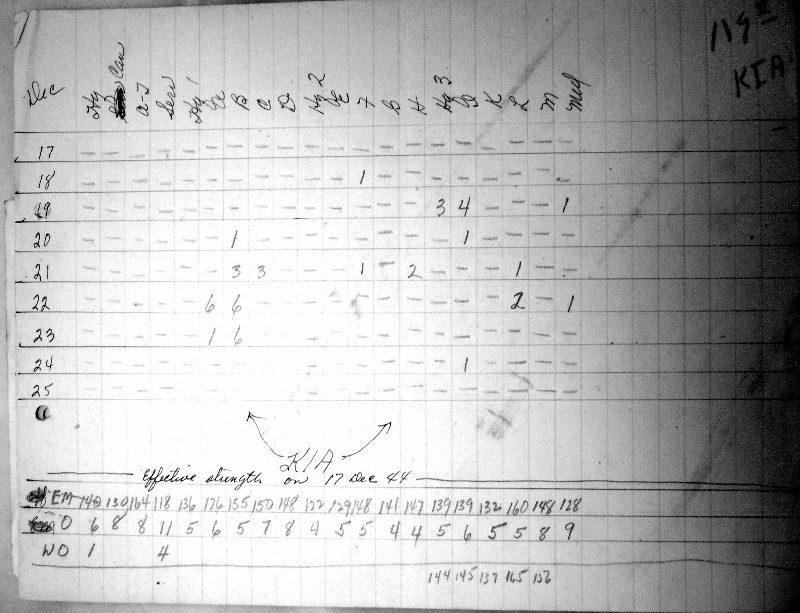 119 II
KIA
Dec Hq Can A-T Serv Hq 1 A B C D Hq 2 E F G H Hq 3 I K L M Med
17 - - - - - - - - - - - - - - - - - - - -
18 - - - - - - - - - - - 1 - - - - - - - -
19 - - - - - - - - - - - - - - 3 4 - - - 1
20 - - - - - - 1 - - - - - - - - 1 - - - -
21 - - - - - - 3 3 - - - 1 - 2 - - - 1 - -
22 - - - - - 6 6 - - - - - - - - - - 2 - 1
23 - - - - - 1 6 - - - - - - - - - - - - -
24 - - - - - - - - - - - - - - - 1 - - - -
25 - - - - - - - - - - - - - - - - - - - -
KIA
Effective strength on 17 Dec 44
EM 140 130 164 118 136 176 155 150 148 122 129 148 141 147 139 139 132 160 148 128
O 6 8 8 11 5 6 5 7 8 4 5 5 4 4 5 6 5 5 8 9
WO 1 4
144 145 137 165 156